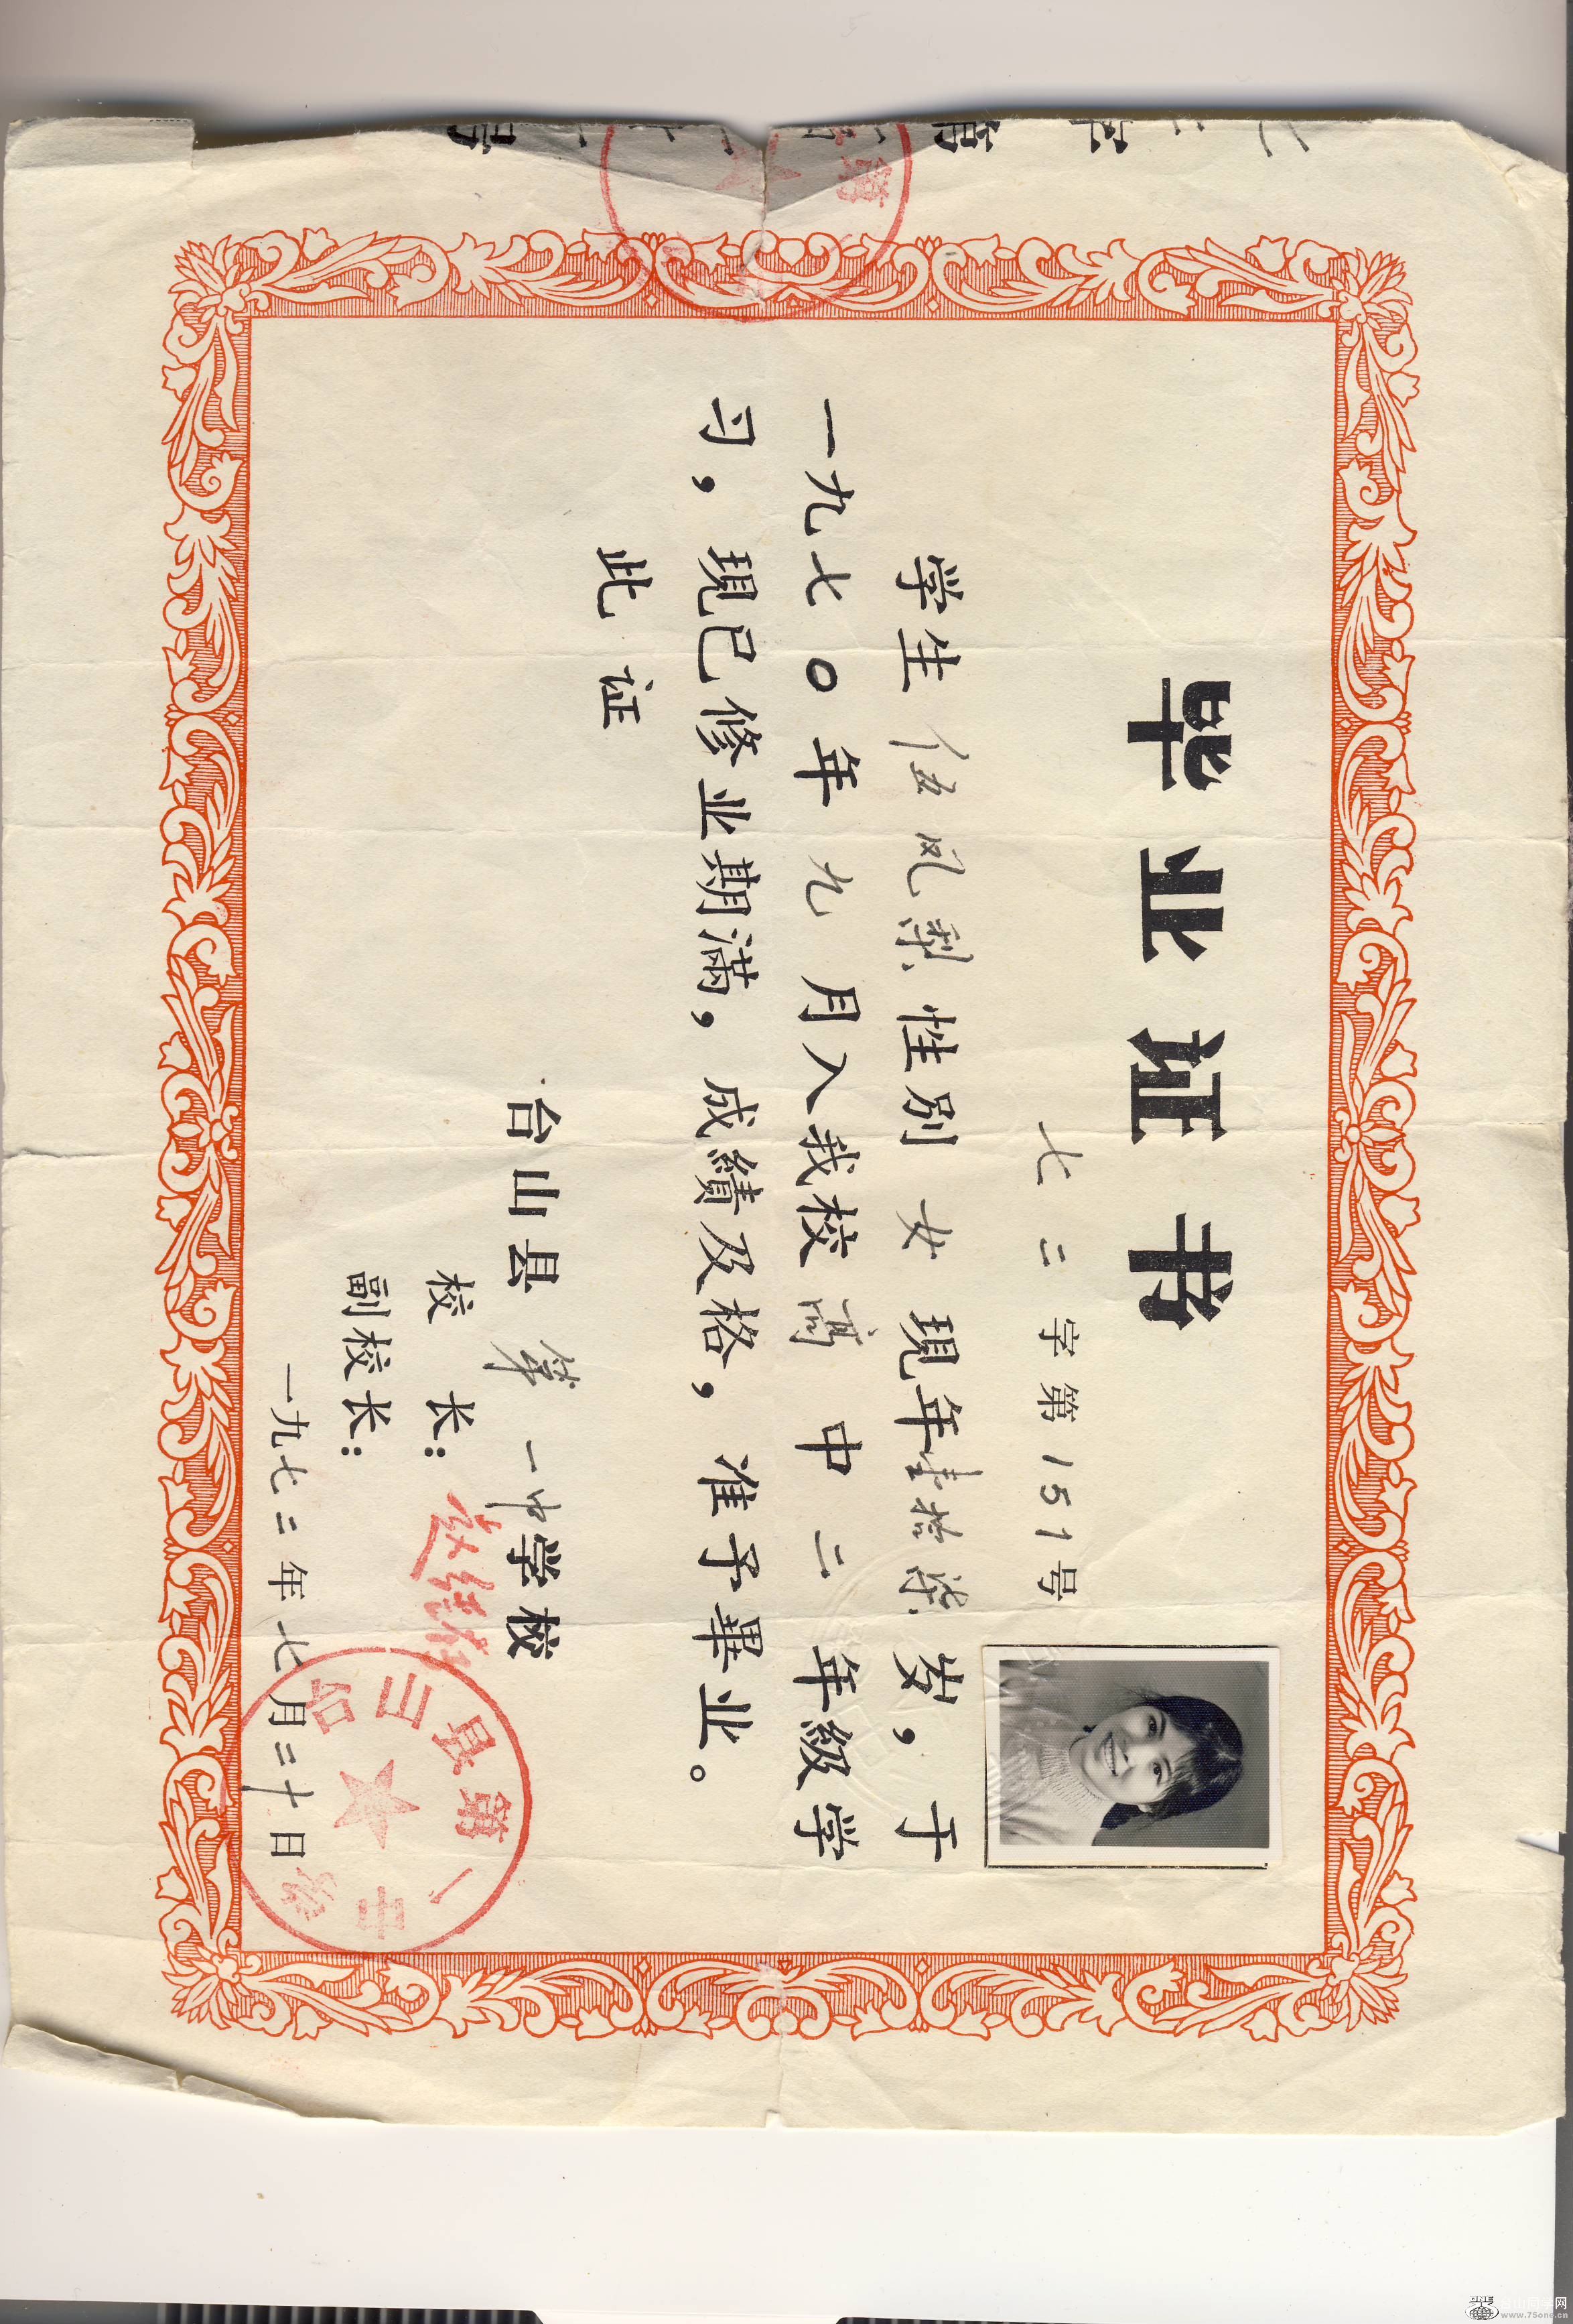 毕业证书
七二字第151号
学生伍凤梨性别女現年壹拾柒岁，于
一九七〇年九月入我校高中二年級学
习，現已修业期满，成績及格，准予畢业。
此证
台山县第一中学校
校长：
副校长：
一九七二年七月二十日
台山县第一中学
www.75one.cn